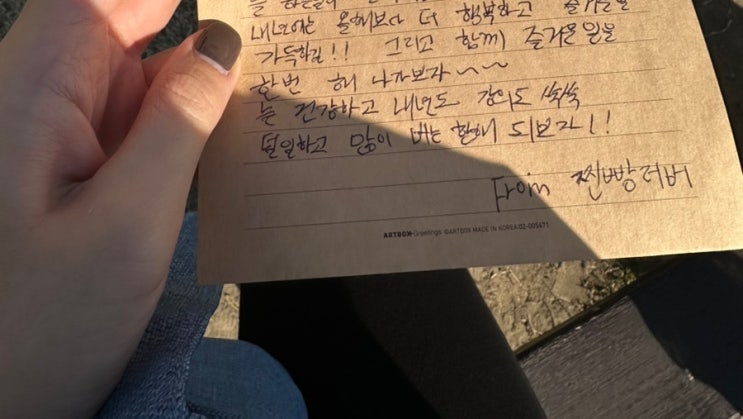 내년에는 올해보다 더 행복하고 즐거움을
가득하길!! 그리고 함께 즐거운 일을
한번 해 나가보자~~
늘 건강하고 내년도 강의도 쏙쏙
덜일하고 많이 버는 한해 되보자!!
From 찐빵러버
ARTBOX Greetings ©ARTBOX MADE IN KOREA 02-005671